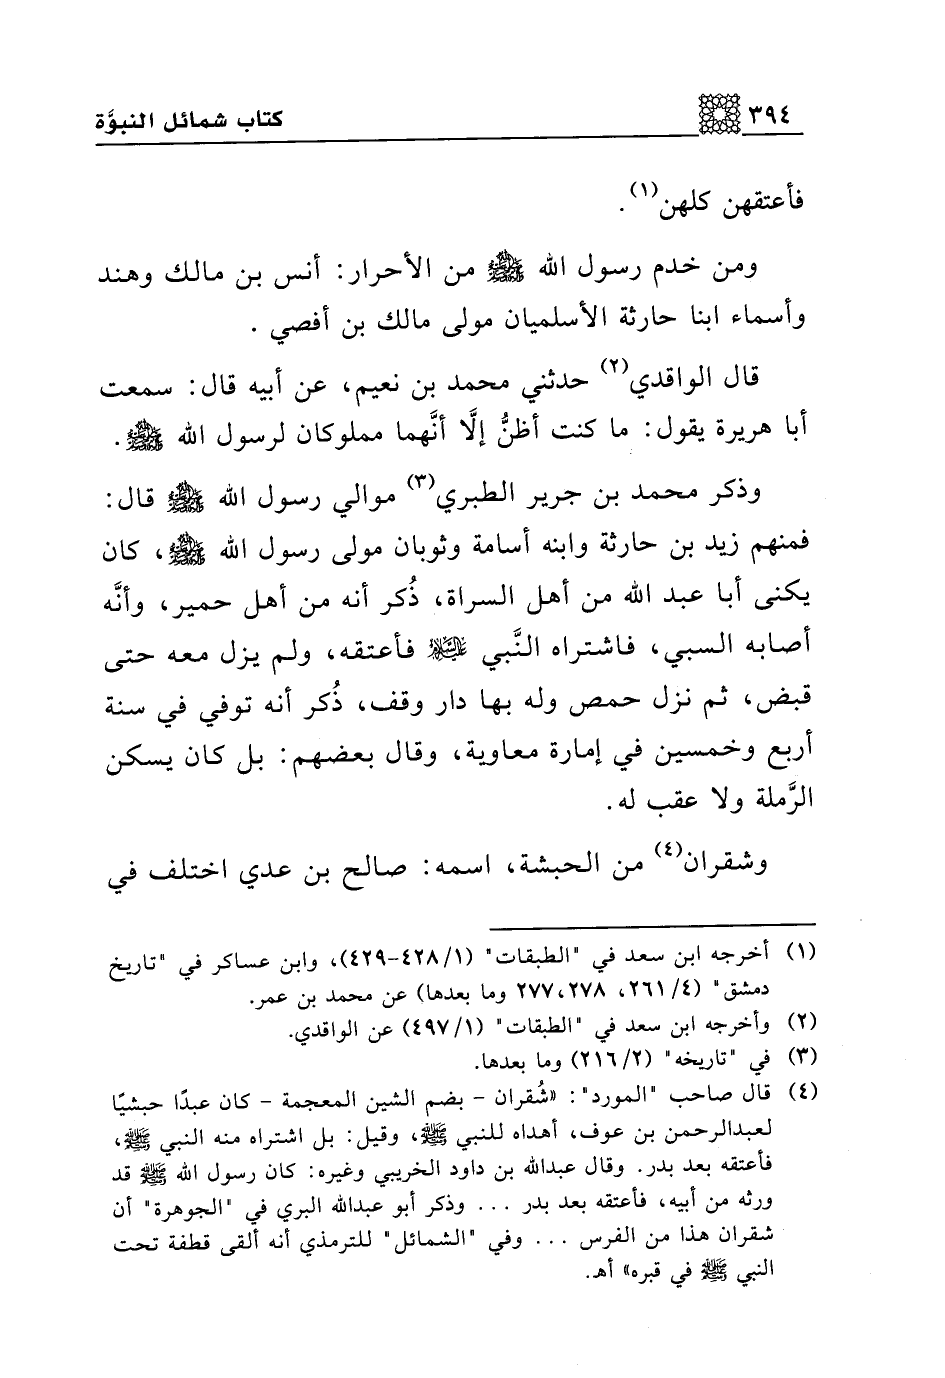 ٣٩٤ كتاب شمائل النبوَّة
فأعتقهن كلهن(١).
ومن خدم رسول الله ﷺ من الأحرار: أنس بن مالك وهند
وأسماء ابنا حارثة الأسلميان مولى مالك بن أفصي .
قال الواقدي(٢) حدثني محمد بن نعيم، عن أبيه قال: سمعت
أبا هريرة يقول: ما كنت أظنُّ إلَّا أنَّهما مملوكان لرسول الله ﷺ.
وذكر محمد بن جرير الطبري(٣) موالي رسول الله ﷺ قال:
فمنهم زيد بن حارثة وابنه أسامة وثوبان مولى رسول الله ﷺ، كان
يكنى أبا عبد الله من أهل السراة، ذُكر أنه من أهل حمير، وأنَّه
أصابه السبي، فاشتراه النَّبي عليه السلام فأعتقه، ولم يزل معه حتى
قبض، ثم نزل حمص وله بها دار وقف، ذُكر أنه توفي في سنة
أربع وخمسين في إمارة معاوية، وقال بعضهم: بل كان يسكن
الرَّملة ولا عقب له.
وشقران(٤) من الحبشة، اسمه: صالح بن عدي اختلف في
(١) أخرجه ابن سعد في "الطبقات" (١/ ٤٢٨-٤٢٩)، وابن عساكر في "تاريخ
دمشق" (٤/ ٢٦١، ٢٧٧،٢٧٨ وما بعدها) عن محمد بن عمر.
(٢) وأخرجه ابن سعد في "الطبقات" (١/ ٤٩٧) عن الواقدي.
(٣) في "تاريخه" (٢/ ٢١٦) وما بعدها.
(٤) قال صاحب "المورد": «شُقران - بضم الشين المعجمة - كان عبدًا حبشيًا
لعبدالرحمن بن عوف، أهداه للنبي ﷺ، وقيل: بل اشتراه منه النبي ﷺ،
فأعتقه بعد بدر. وقال عبدالله بن داود الخريبي وغيره: كان رسول الله ﷺ قد
ورثه من أبيه، فأعتقه بعد بدر ... وذكر أبو عبدالله البري في "الجوهرة" أن
شقران هذا من الفرس ... وفي "الشمائل" للترمذي أنه ألقى قطفة تحت
النبي ﷺ في قبره» أهـ.